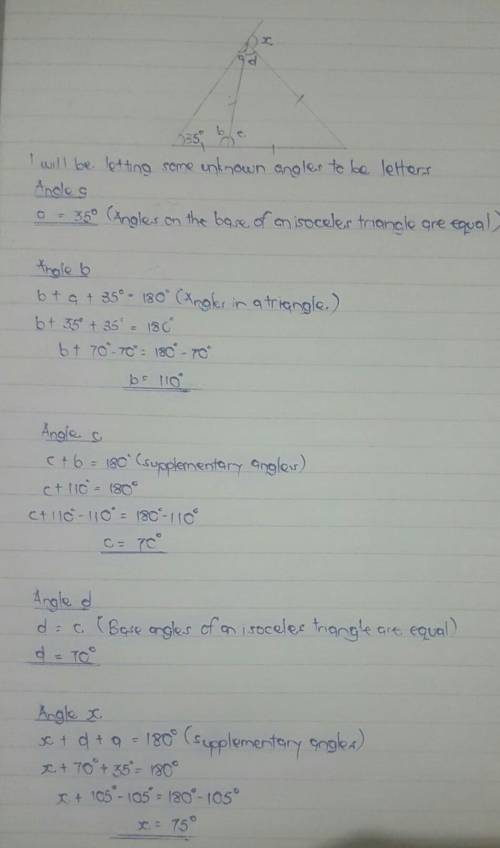 x
a d
b c
35°
I will be letting some unknown angles to be letters
Angle a
a = 35° (Angles on the base of an isoceles triangle are equal)
Angle b
b + a + 35° = 180° (Angles in a triangle.)
b + 35° + 35° = 180°
b + 70° - 70° = 180° - 70°
b = 110°
Angle c
c + b = 180° (supplementary angles)
c + 110° = 180°
c + 110° - 110° = 180° - 110°
c = 70°
Angle d
d = c (Base angles of an isoceles triangle are equal)
d = 70°
Angle x
x + d + a = 180° (supplementary angles)
x + 70° + 35° = 180°
x + 105° - 105° = 180° - 105°
x = 75°